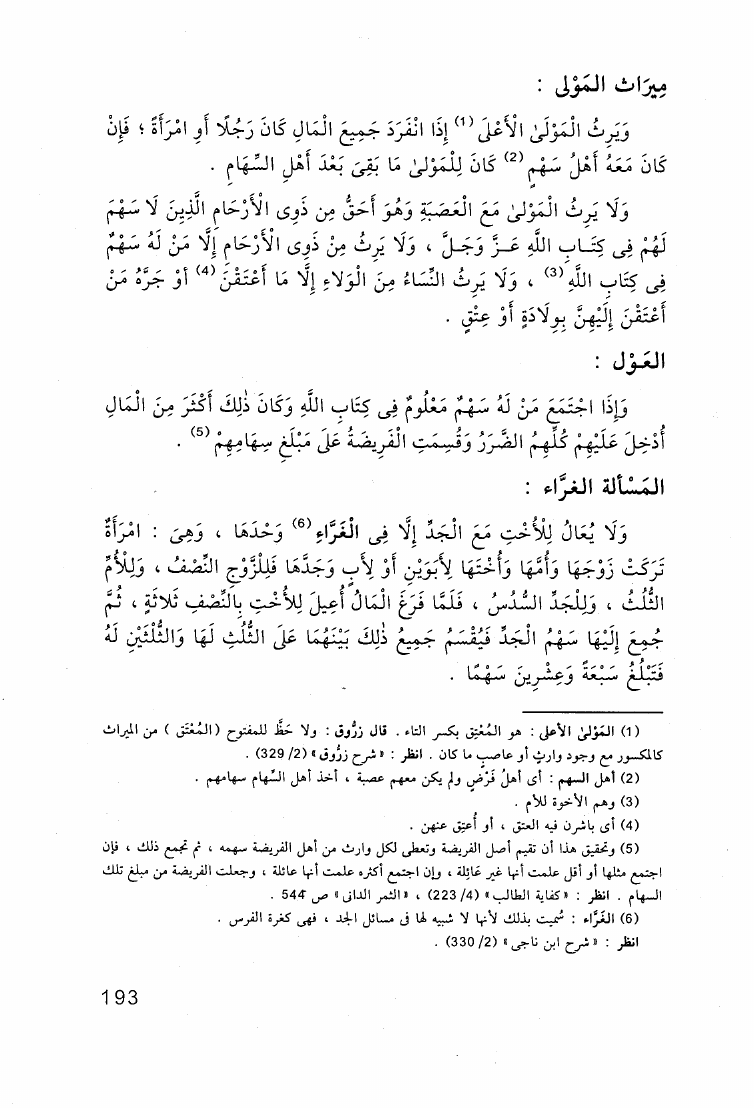 مِيرَاث المَوْلى :
وَيَرِثُ الْمَوْلَىٰ الْأَعْلَىٰ (1) إِذَا انْفَرَدَ جَمِيعَ الْمَالِ كَانَ رَجُلًا أَوِ امْرَأَةً ؛ فَإِنْ
كَانَ مَعَهُ أَهْلُ سَهْمٍ (2) كَانَ لِلْمَوْلىٰ مَا بَقِىَ بَعْدَ أَهْلِ السِّهَامِ .
وَلَا يَرِثُ الْمَوْلىٰ مَعَ الْعَصَبَةِ وَهُوَ أَحَقُّ مِن ذَوِى الْأَرْحَامِ الَّذِينَ لَا سَهْمَ
لَهُمْ فِى كِتَـابِ اللَّهِ عَـزَّ وَجَـلَّ ، وَلَا يَرِثُ مِنْ ذَوِى الْأَرْحَامِ إِلَّا مَنْ لَهُ سَهْمٌ
فِى كِتَابِ اللَّهِ (3) ، وَلَا يَرِثُ النِّسَاءُ مِنَ الْوَلَاءِ إِلَّا مَا أَعْتَقْنَ (4) أَوْ جَرَّهُ مَنْ
أَعْتَقْنَ إِلَيْهِنَّ بِوِلَادَةٍ أَوْ عِتْقٍ .
العَـوْل :
وَإِذَا اجْتَمَعَ مَنْ لَهُ سَهْمٌ مَعْلُومٌ فِى كِتَابِ اللَّهِ وَكَانَ ذٰلِكَ أَكْثَرَ مِنَ الْمَالِ
أُدْخِلَ عَلَيْهِمْ كُلِّهِمُ الضَّرَرُ وَقُسِمَتِ الْفَرِيضَةُ عَلَىٰ مَبْلَغِ سِهَامِهِمْ (5) .
المَسْألة الغرَّاء :
وَلَا يُعَالُ لِلْأُخْتِ مَعَ الْجَدِّ إِلَّا فِى الْغَرَّاءِ (6) وَحْدَهَا ، وَهِىَ : امْرَأَةٌ
تَرَكَتْ زَوْجَهَا وَأُمَّهَا وَأُخْتَهَا لِأَبَوَيْنِ أَوْ لِأَبٍ وَجَدَّهَا فَلِلزَّوْجِ النِّصْفُ ، وَلِلْأُمِّ
الثُّلُثُ ، وَلِلْجَدِّ السُّدُسُ ، فَلَمَّا فَرَغَ الْمَالُ أُعِيلَ لِلْأُخْتِ بِالنِّصْفِ ثَلَاثَةٍ ، ثُمَّ
جُمِعَ إِلَيْهَا سَهْمُ الْجَدِّ فَيُقْسَمُ جَمِيعُ ذٰلِكَ بَيْنَهُمَا عَلَىٰ الثُّلُثِ لَهَا وَالثُّلُثَيْنِ لَهُ
فَتَبْلُغُ سَبْعَةً وَعِشْرِينَ سَهْمًا .
(1) المَوْلىٰ الأعلى : هو المُعْتِق بكسر التاء . قال زرُّوق : ولا حَظَّ للمفتوح (المُعْتَق ) من الميراث
كالمكسور مع وجود وارثٍ أو عاصبٍ ما كان . انظر : «شرح زرُّوق» (2/ 329) .
(2) أهل السهم : أى أهلُ فَرْضٍ ولم يكن معهم عصبة ، أخذ أهل السِّهام سهامهم .
(3) وهم الأخوة للأم .
(4) أى باشرن فيه العتق ، أو أُعتِق عنهن .
(5) وتحقيق هذا أن تقيم أصل الفريضة وتعطى لكل وارث من أهل الفريضة سهمه ، ثم تجمع ذلك ، فإن
اجتمع مثلها أو أقل علمت أنها غير عَائِلة ، وإن اجتمع أكثره علمت أنها عائلة ، وجعلت الفريضة من مبلغ تلك
السهام . انظر : «كفاية الطالب» (4/ 223) ، «الثمر الدانى» ص 544 .
(6) الغرَّاء : سُمِّيت بذلك لأنها لا شبيه لها فى مسائل الجد ، فهى كغرة الفرس .
انظر : «شرح ابن ناجى» (2/ 330) .
193